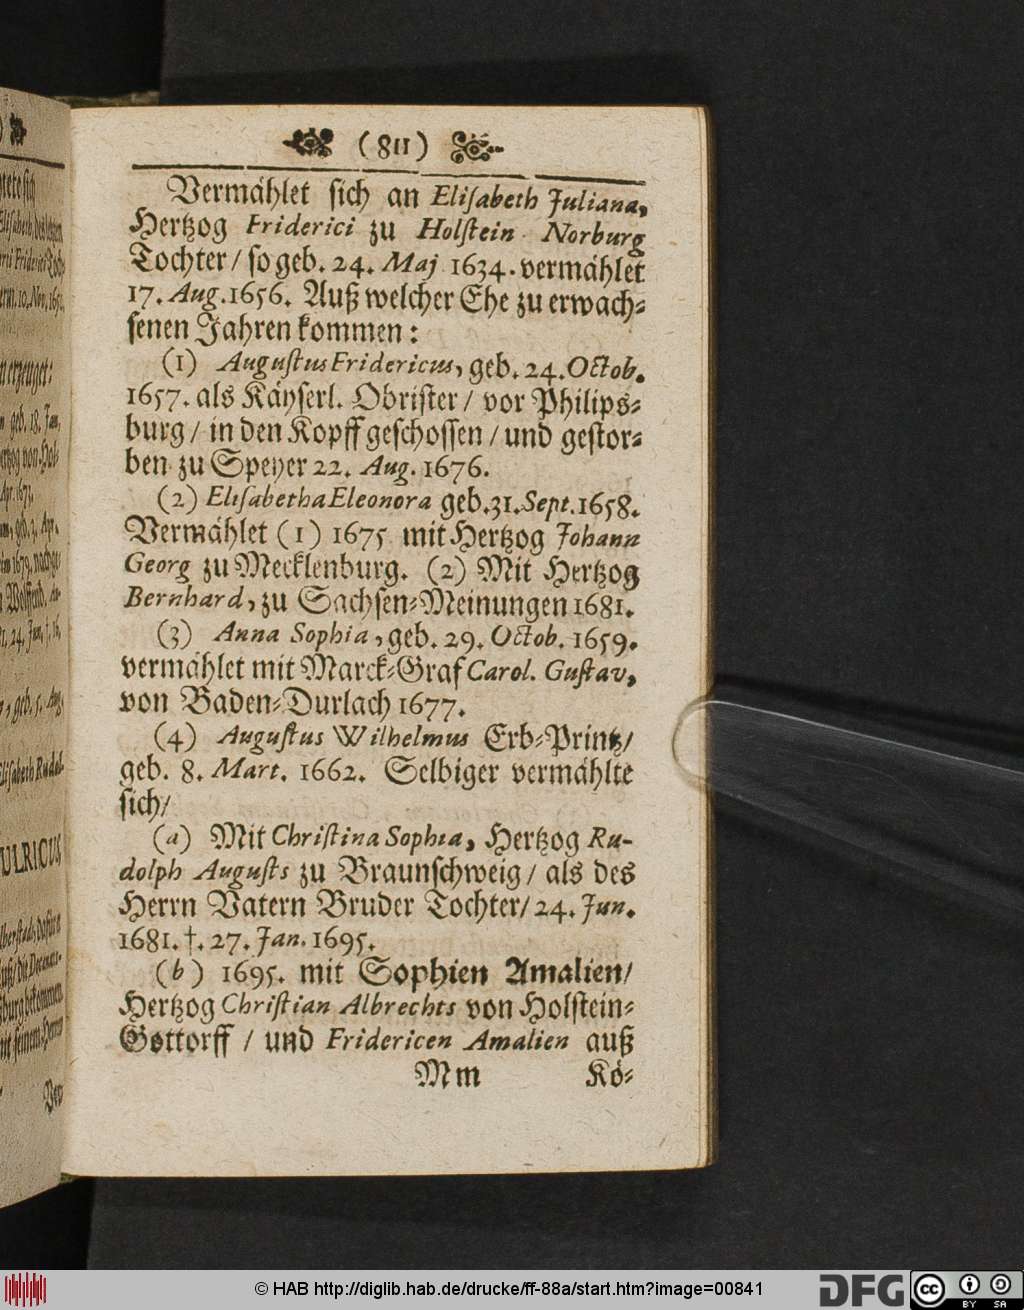 (811)
Vermählet sich an Elisabeth Juliana,
Hertzog Friderici zu Holstein Norburg
Tochter / so geb. 24. Maj 1634. vermählet
17. Aug. 1656. Auß welcher Ehe zu erwach⸗
senen Jahren kommen:
(1) Augustus Fridericus, geb. 24. Octob.
1657. als Käyserl. Obrister / vor Philips⸗
burg / in den Kopff geschossen / und gestor⸗
ben zu Speyer 22. Aug. 1676.
(2) Elisabetha Eleonora geb. 31. Sept. 1658.
Vermählet (1) 1675 mit Hertzog Johann
Georg zu Mecklenburg. (2) Mit Hertzog
Bernhard, zu Sachsen⸗Meinungen 1681.
(3) Anna Sophia, geb. 29. Octob. 1659.
vermählet mit Marck⸗Graf Carol. Gustav,
von Baden⸗Durlach 1677.
(4) Augustus Wilhelmus Erb⸗Printz /
geb. 8. Mart. 1662. Selbiger vermählte
sich /
(a) Mit Christina Sophia, Hertzog Ru-
dolph Augusts zu Braunschweig / als des
Herrn Vatern Bruder Tochter / 24. Jun.
1681. †. 27. Jan. 1695.
(b) 1695. mit Sophien Amalien /
Hertzog Christian Albrechts von Holstein⸗
Gottorff / und Fridericen Amalien auß
Mm Kö⸗
© HAB http://diglib.hab.de/drucke/ff-88a/start.htm?image=00841
DFG
cc BY SA